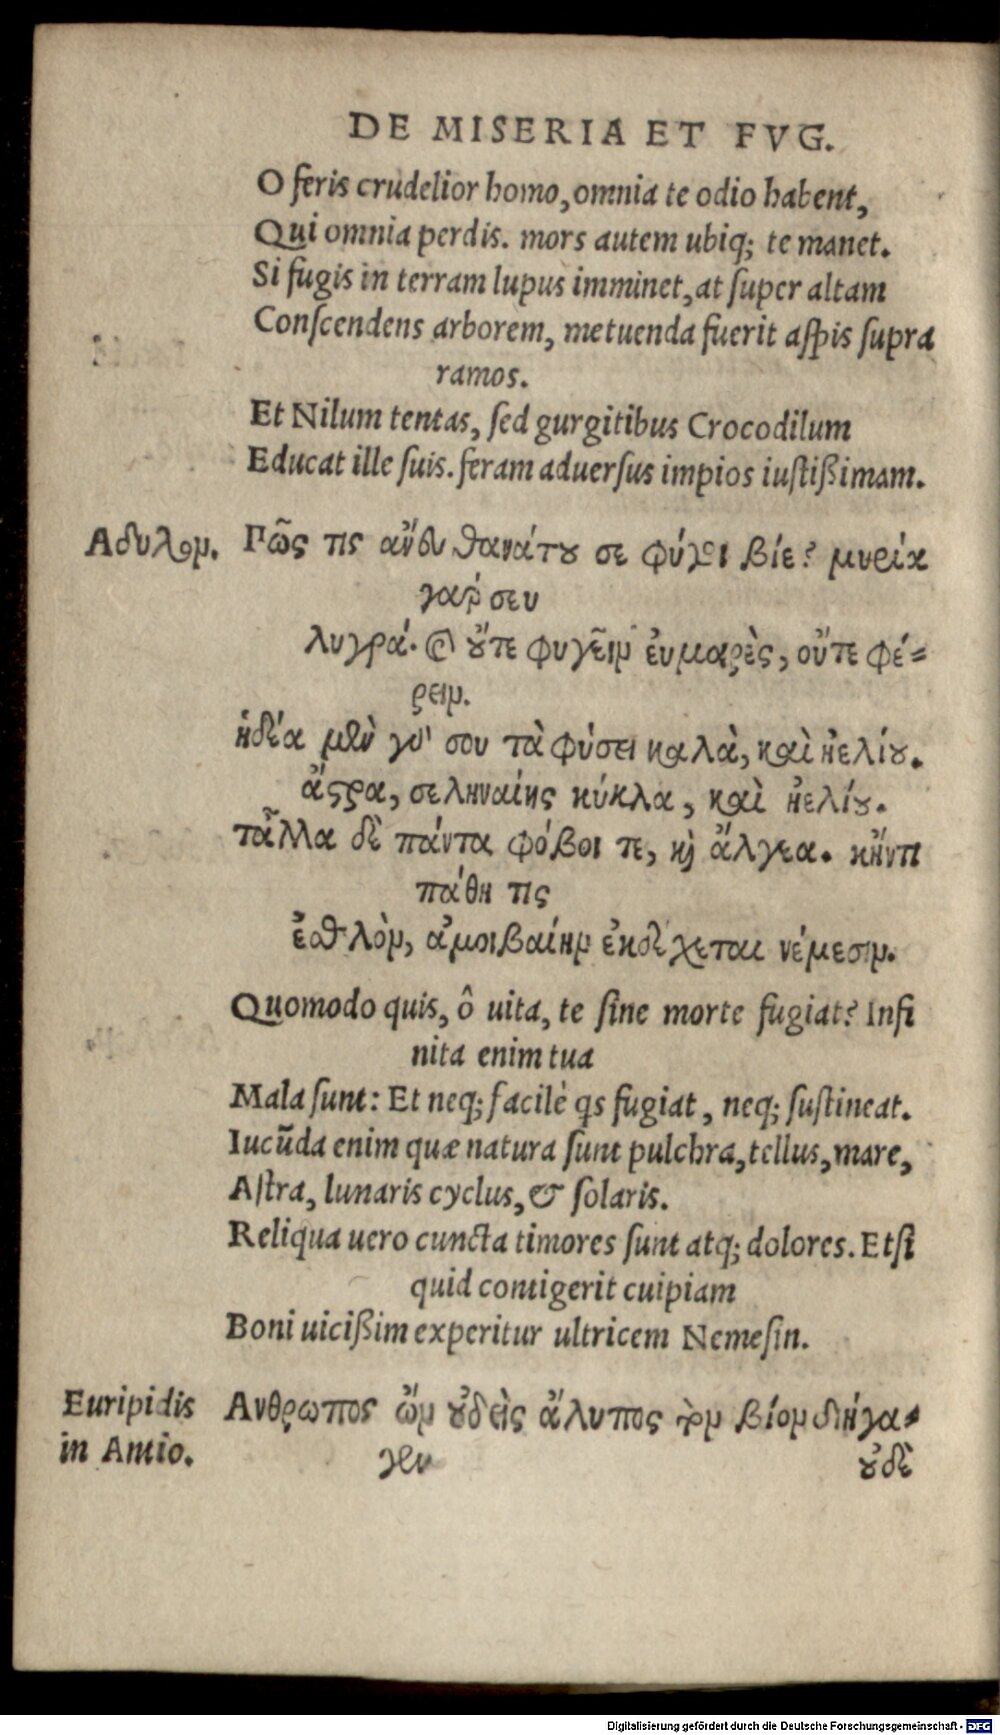 DE MISERIA ET FVG.
O feris crudelior homo, omnia te odio habent,
Qui omnia perdis. mors autem ubiq; te manet.
Si fugis in terram lupus imminet, at super altam
Conscendens arborem, metuenda fuerit aspis supra
ramos.
Et Nilum tentas, sed gurgitibus Crocodilum
Educat ille suis. feram aduersus impios iustißimam.
Αδυλομ. Πῶς τις ἄνδυ θανάτου σε φύγοι βίε? μυρία
γαρ σευ
λυγρά. οὔτε φυγεῖν ἐυμαρὲς, οὔτε φέ=
ρειν.
ἡδέα μὲν γὰ σου τὰ φύσει καλὰ, καὶ ἠελίου.
ἄστρα, σεληναίης κύκλα, καὶ ἠελίου.
τἆλλα δὲ πάντα φόβοι τε, καὶ ἄλγεα. κἤντι
πάθη τις
ἐσθλὸν, ἀμοιβαίην ἐκδέχεται νέμεσιν.
Quomodo quis, ô uita, te sine morte fugiat? Infi
nita enim tua
Mala sunt: Et neq; facilè qs fugiat, neq; sustineat.
Iucūda enim quæ natura sunt pulchra, tellus, mare,
Astra, lunaris cyclus, & solaris.
Reliqua uero cuncta timores sunt atq; dolores. Etsi
quid contigerit cuipiam
Boni uicißim experitur ultricem Nemesin.
Euripidis Ανθρωπος ὢν οὐδεὶς ἄλυπος τὸν βίον διήγα=
in Antio. γεν οὐδὲ
Digitalisierung gefördert durch die Deutsche Forschungsgemeinschaft - DFG